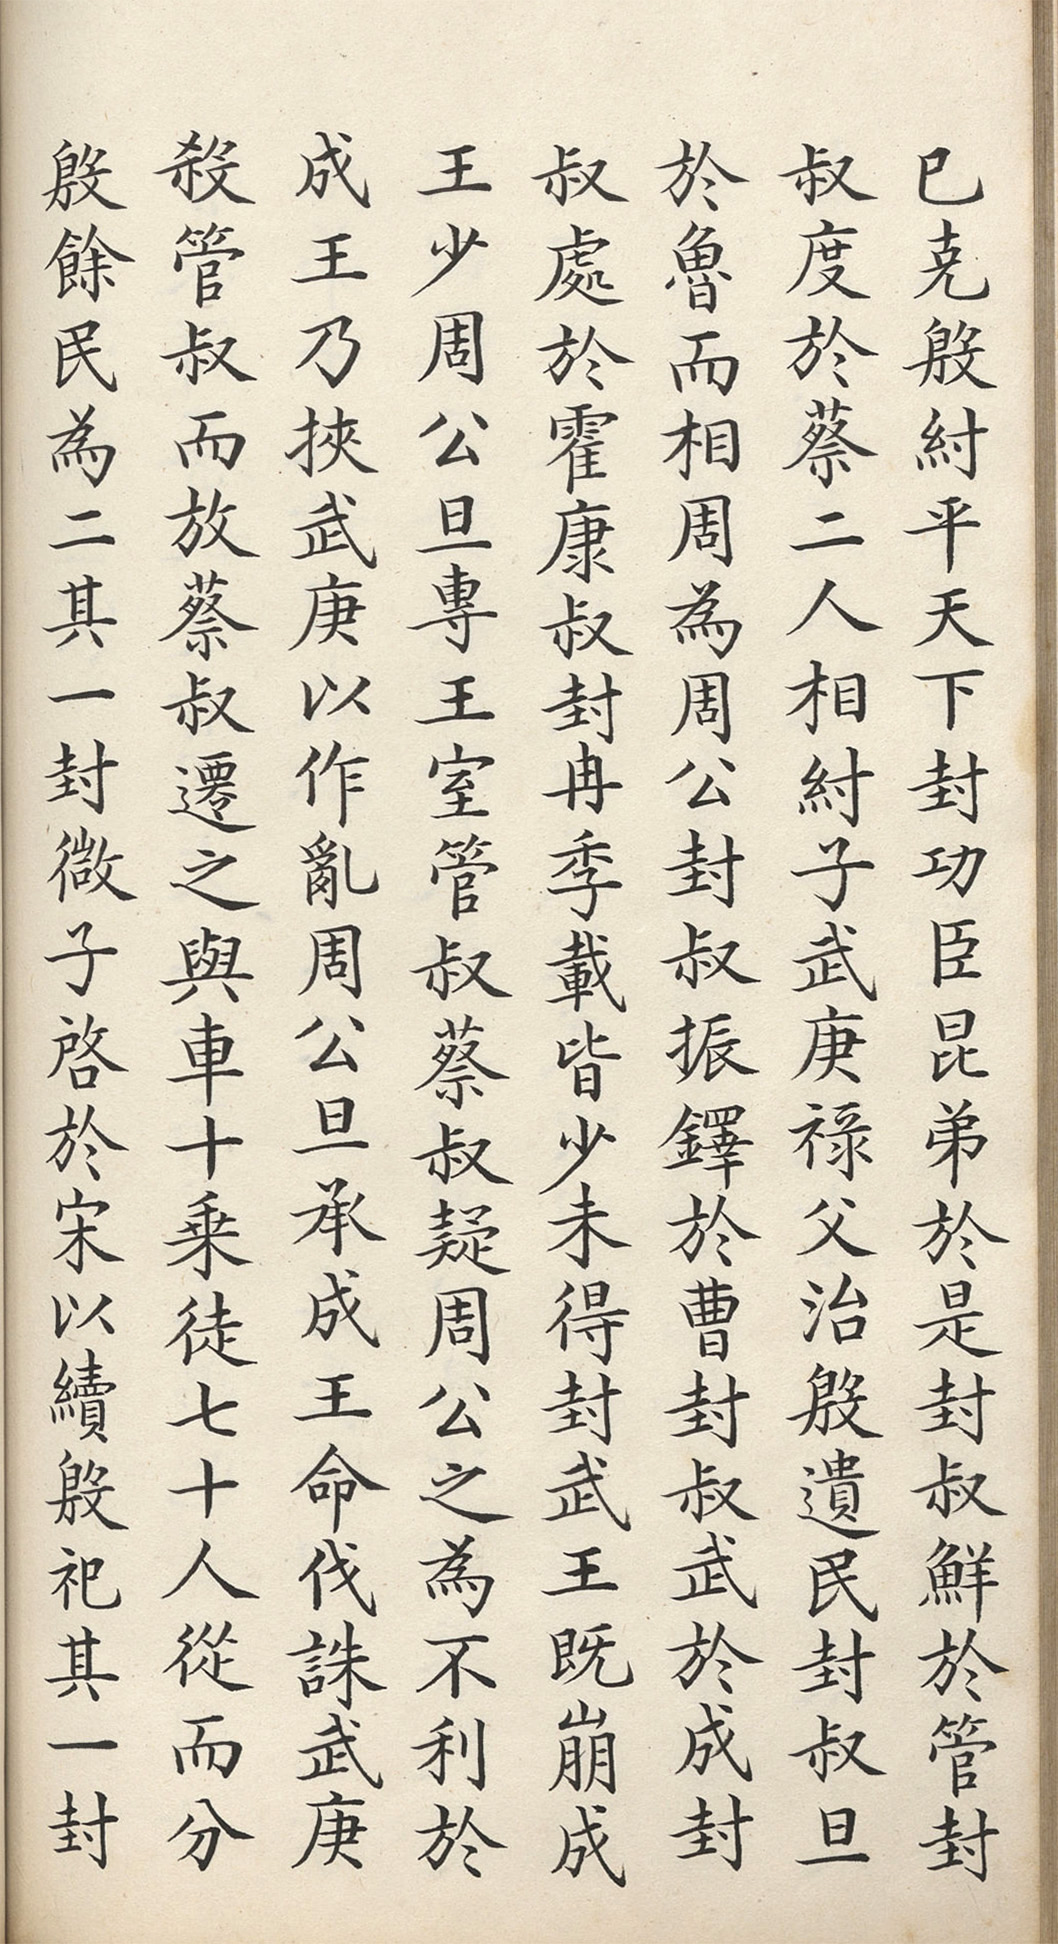 已克殷紂平天下封功臣昆弟於是封叔鮮於管封
叔度於蔡二人相紂子武庚祿父治殷遺民封叔旦
於魯而相周為周公封叔振鐸於曹封叔武於成封
叔處於霍康叔封冉季載皆少未得封武王既崩成
王少周公旦專王室管叔蔡叔疑周公之為不利於
成王乃挾武庚以作亂周公旦承成王命伐誅武庚
殺管叔而放蔡叔遷之與車十乗徒七十人從而分
殷餘民為二其一封微子啓於宋以續殷祀其一封